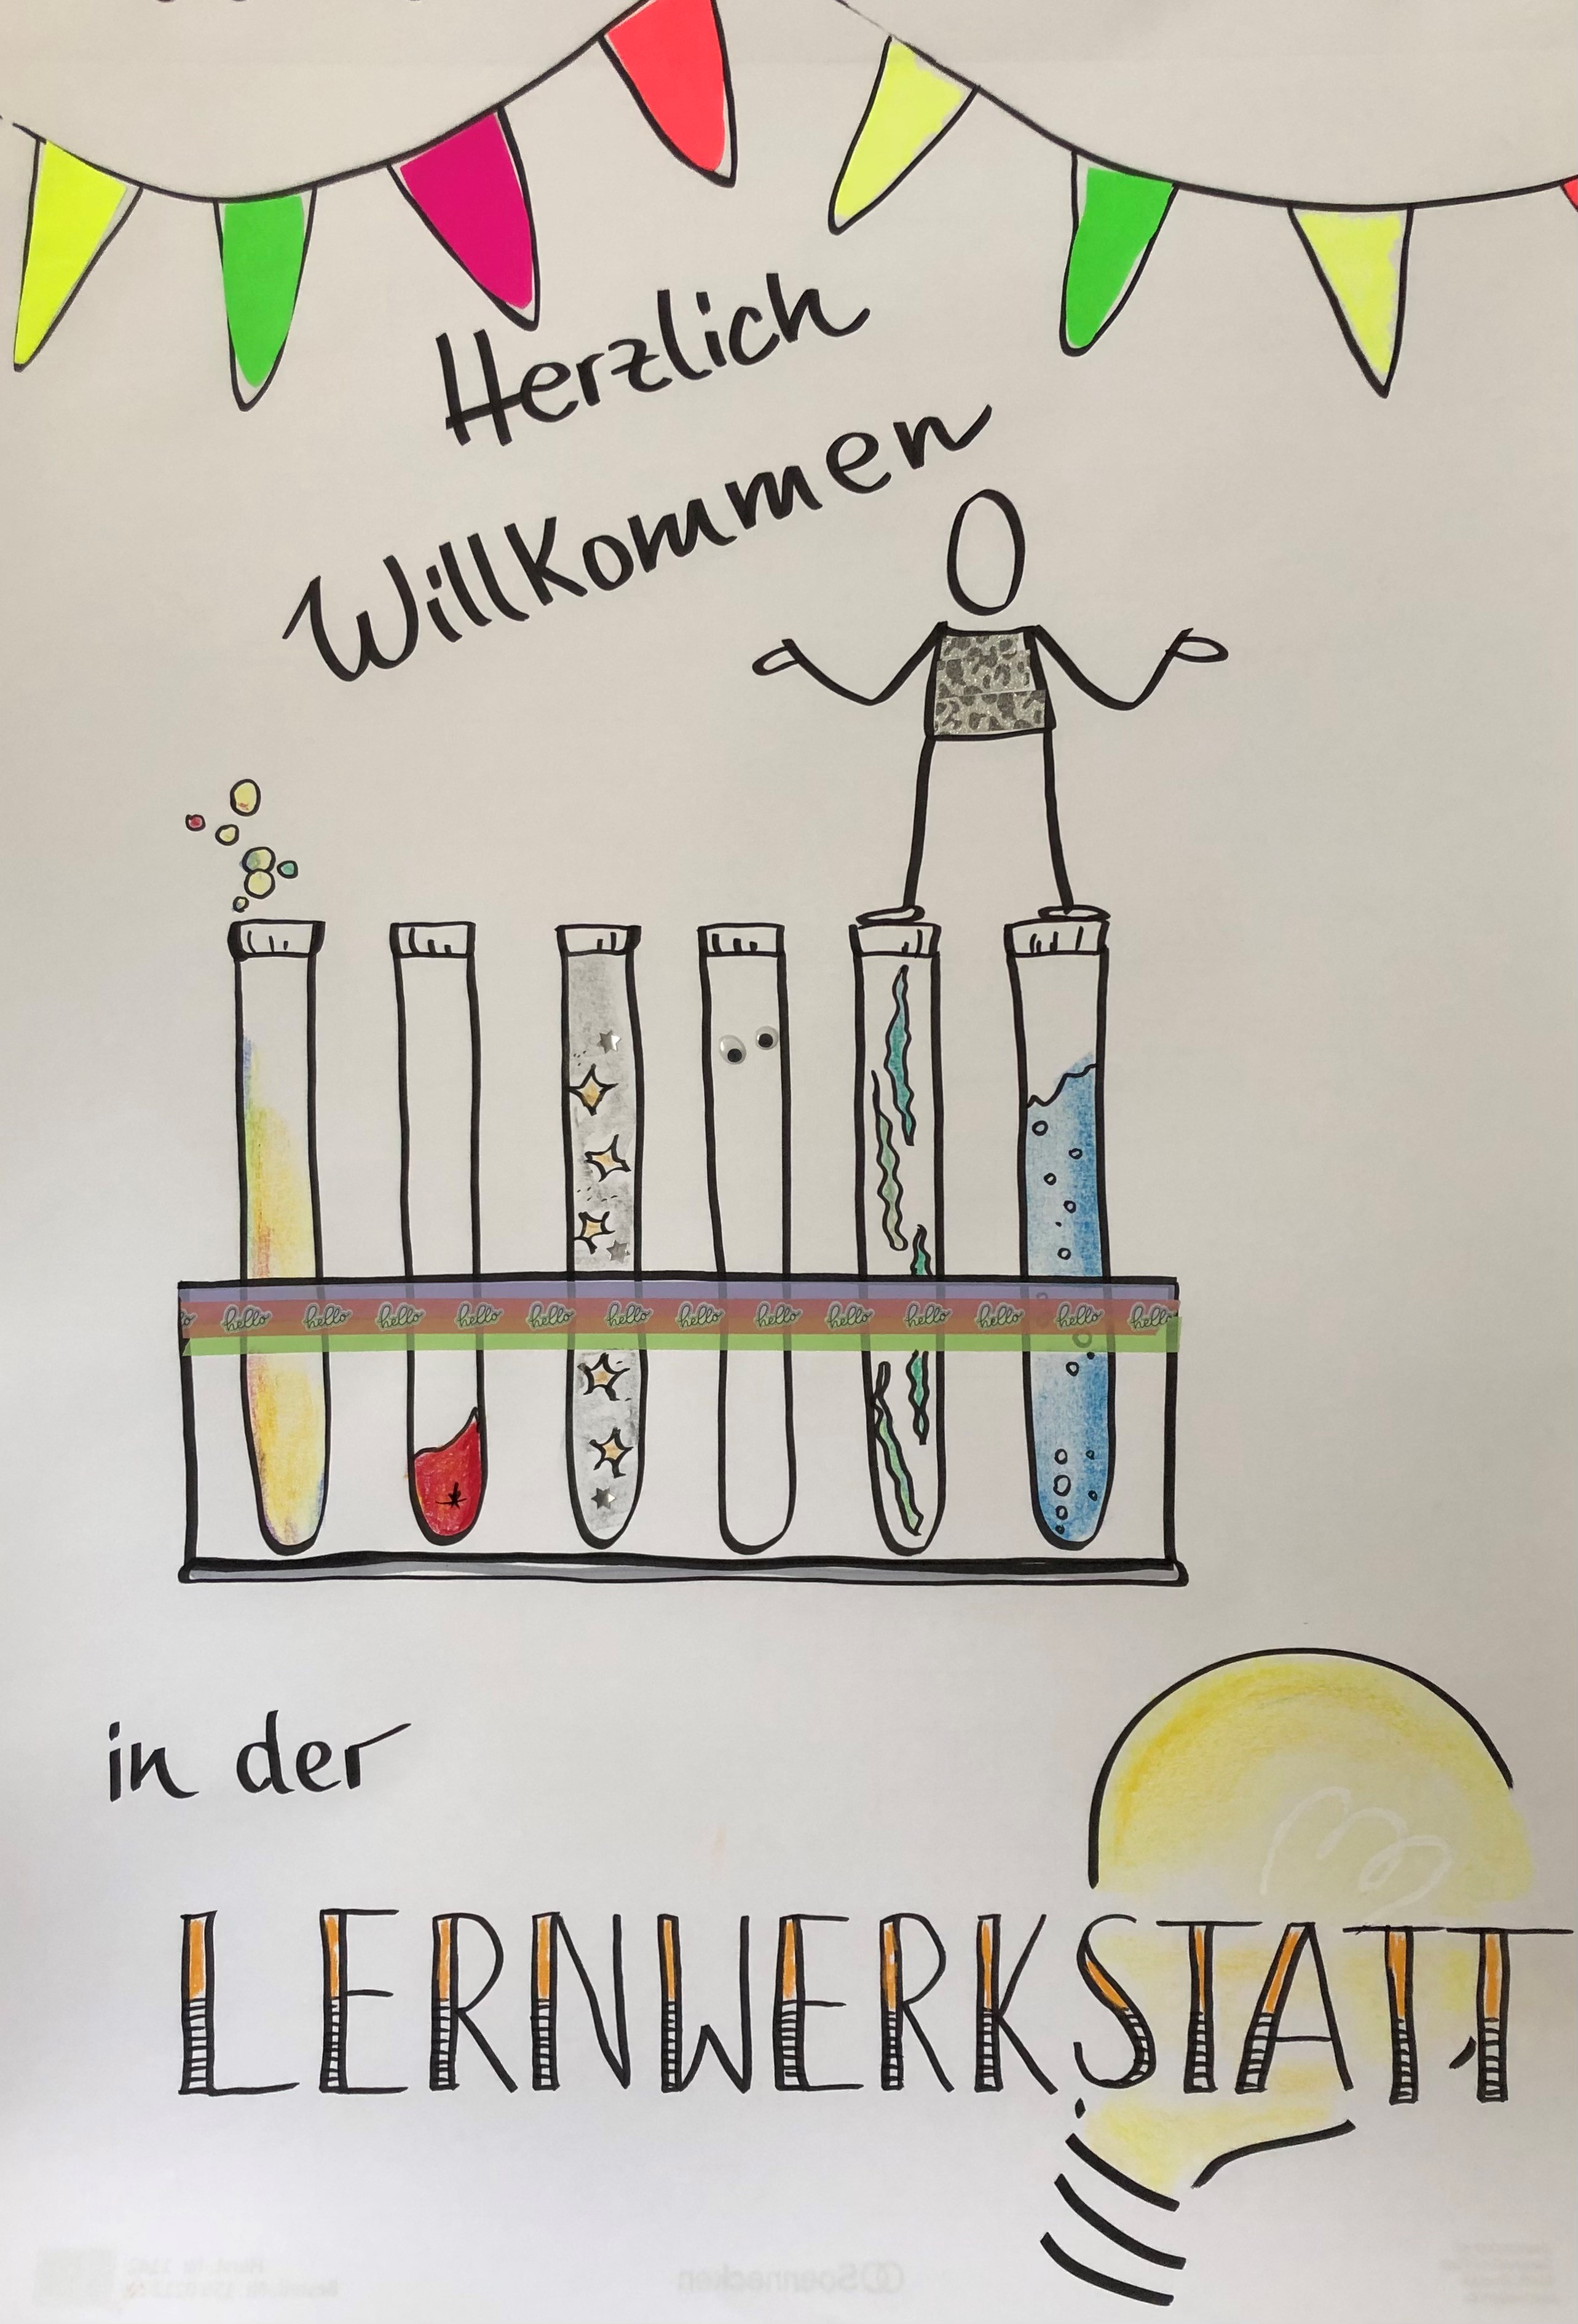 Herzlich
Willkommen
hello hello hello hello hello hello hello hello hello hello hello hello hello
in der
LERNWERKSTATT
Soennecken